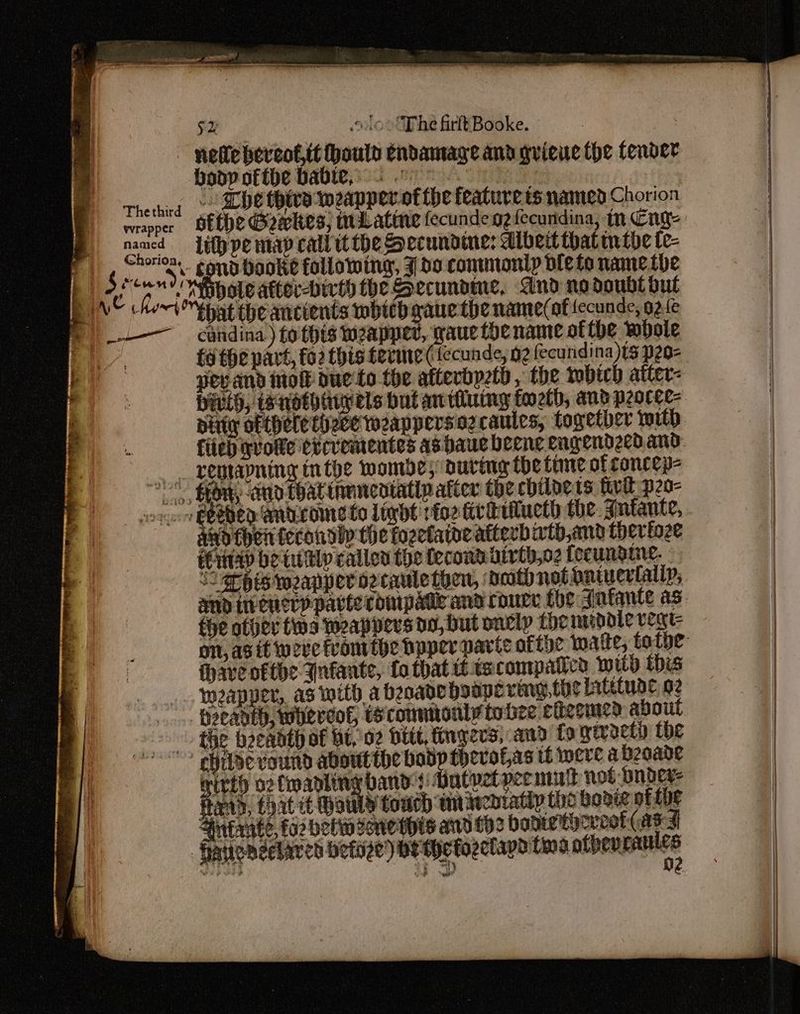 52 The first Booke.
nesse hereof, it should endamage and grieue the tender
body of the babie.
The third wrapper of the feature is named Chorion
of the Greekes, in Latine secunde or secundina, in Eng-
lish ye may call it the Secundine: Albeit that in the se-
cond booke following, I do commonly vse to name the
whole after-birth the Secundine. And no doubt but
that the ancients which gaue the name (of secunde, or se
cundina) to this wrapper, gaue the name of the whole
to the part, for this terme (secunde, or secundina) is pro-
per and most due to the afterbyrth, the which after-
birth, is nothing els but an issuing forth, and procee-
ding of these three wrappers or caules, together with
such grosse excrementes as haue beene engendred and
remayning in the wombe, during the time of concep-
tion, and that immediatly after the childe is first pro-
ceeded and come to light: for first issueth the Infante,
and then secondly the foresaide afterbirth, and therfore
it may be iustly called the second birth, or secundine.
This wrapper or caule then, doth not vniuersally,
and in euery parte compasse and couer the Infante as
the other two wrappers do, but onely the middle regi-
on, as it were from the vpper parte of the waste, to the
share of the Infante, so that it is compassed with this
wrapper, as with a broade hoope ring, the latitude or
breadth, whereof, is commonly to bee esteemed about
the breadth of vi. or viii. fingers, and so girdeth the
childe round about the body therof, as it were a broade
girth or swadling band: but yet yee must not vnder-
stand, that it should touch immediatly the bodie of the
Infante, for betweene this and the bodie thereof (as I
haue declared before) be the foresayd two other caules
or
The third
wrapper
named
Chorion,